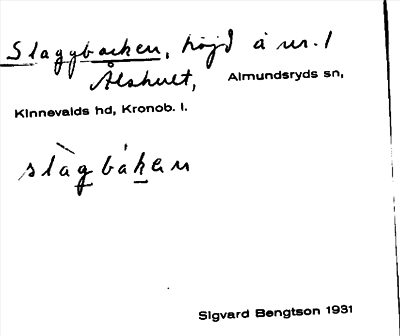 Slaggbacken, höjd å nr. 1
Ålshult, Almundsryds sn,
Kinnevalds hd, Kronob. l.
slàgbákan
Sigvard Bengtson 1931